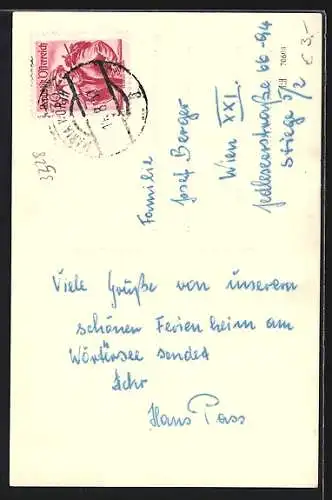 Republik Österreich
MARIA WÖRTH
3328
€ 3,-
Familie
Josef Berger
Wien XXI.
Jedleseerstraße 66-94
Stiege 5/2
Viele Grüße von unserem
schönen Ferienheim am
Wörtersee sendet
Ihr
Hans Pass